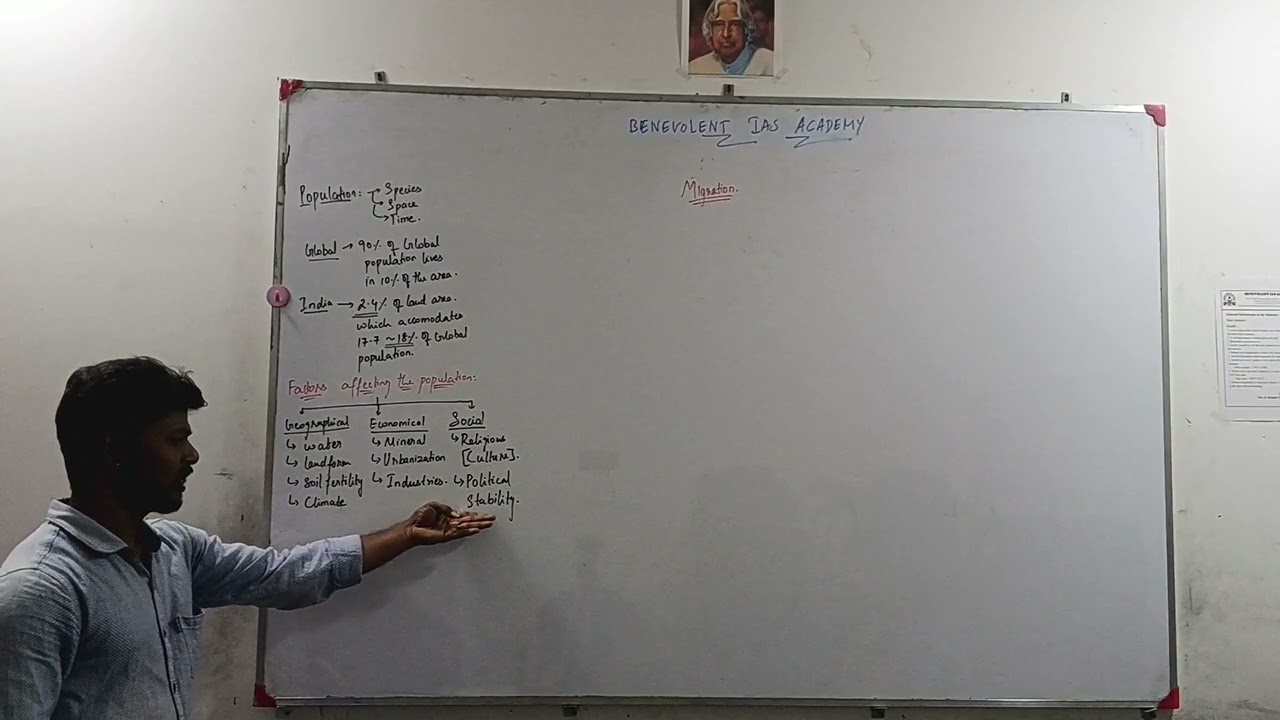 BENEVOLENT IAS ACADEMY
Migration.
Population: → Species
→ Space
→ Time.
Global → 90% of Global
population lives
in 10% of the area.
India → 2.4% of land area.
which accomodates
17.7 ~18% of Global
population.
Factors affecting the population:
Geographical
↳ water
↳ landform
↳ Soil fertility
↳ Climate
Economical
↳ Mineral
↳ Urbanization
↳ Industries.
Social
↳ Religious
[Culture].
↳ Political
Stability.